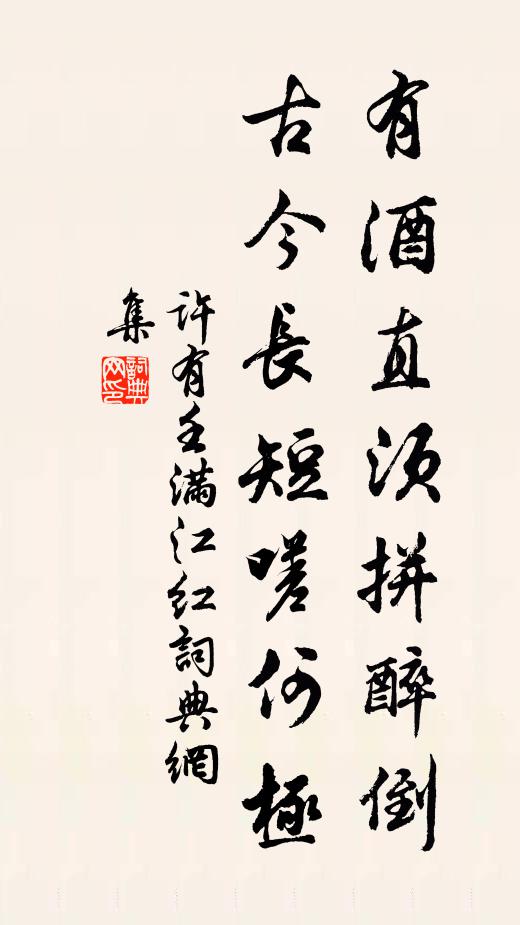 有酒直須拼醉倒
古今長短嗟何極
許有壬滿江红詞典網
集
詞典网印